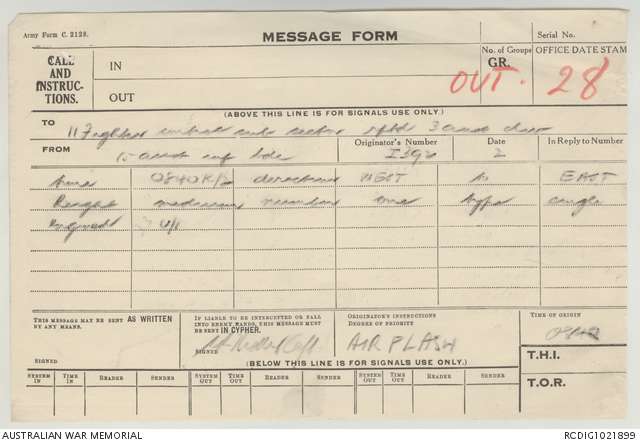 Army Form C. 2128.
MESSAGE FORM
Serial No.
CALL AND INSTRUCTIONS.
IN
OUT
No. of Groups
GR.
OFFICE DATE STAMP
OUT. 28
(ABOVE THIS LINE IS FOR SIGNALS USE ONLY.)
TO
11 Fighter control sector 3
FROM
15 aust inf bde
Originator's Number
Date
2
In Reply to Number
time 0840K/2 direction WEST to EAST
Height medium number one type single
THIS MESSAGE MAY BE SENT AS WRITTEN BY ANY MEANS.
SIGNED
IF LIABLE TO BE INTERCEPTED OR FALL INTO ENEMY HANDS, THIS MESSAGE MUST BE SENT IN CYPHER.
SIGNED
ORIGINATOR'S INSTRUCTIONS
DEGREE OF PRIORITY
AIR FLASH
TIME OF ORIGIN
T.H.I.
T.O.R.
(BELOW THIS LINE IS FOR SIGNALS USE ONLY.)
SYSTEM IN
TIME IN
READER
SENDER
SYSTEM OUT
TIME OUT
READER
SENDER
SYSTEM OUT
TIME OUT
READER
SENDER
AUSTRALIAN WAR MEMORIAL
RCDIG1021899